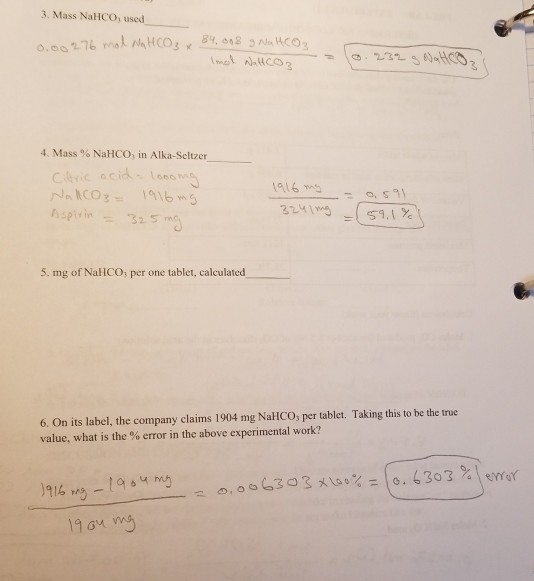 3. Mass NaHCO₃ used
0.00276 mol NaHCO₃ x 84.008 g NaHCO₃ / 1mol NaHCO₃ = 0.232 g NaHCO₃
4. Mass % NaHCO₃ in Alka-Seltzer
Citric acid = 1000mg
NaHCO₃ = 1916 mg
Aspirin = 325 mg
1916 mg / 3241mg = 0.591
= 59.1 %
5. mg of NaHCO₃ per one tablet, calculated
6. On its label, the company claims 1904 mg NaHCO₃ per tablet. Taking this to be the true
value, what is the % error in the above experimental work?
1916 mg - 1904 mg / 1904 mg = 0.006303 x 100% = 0.6303 % error